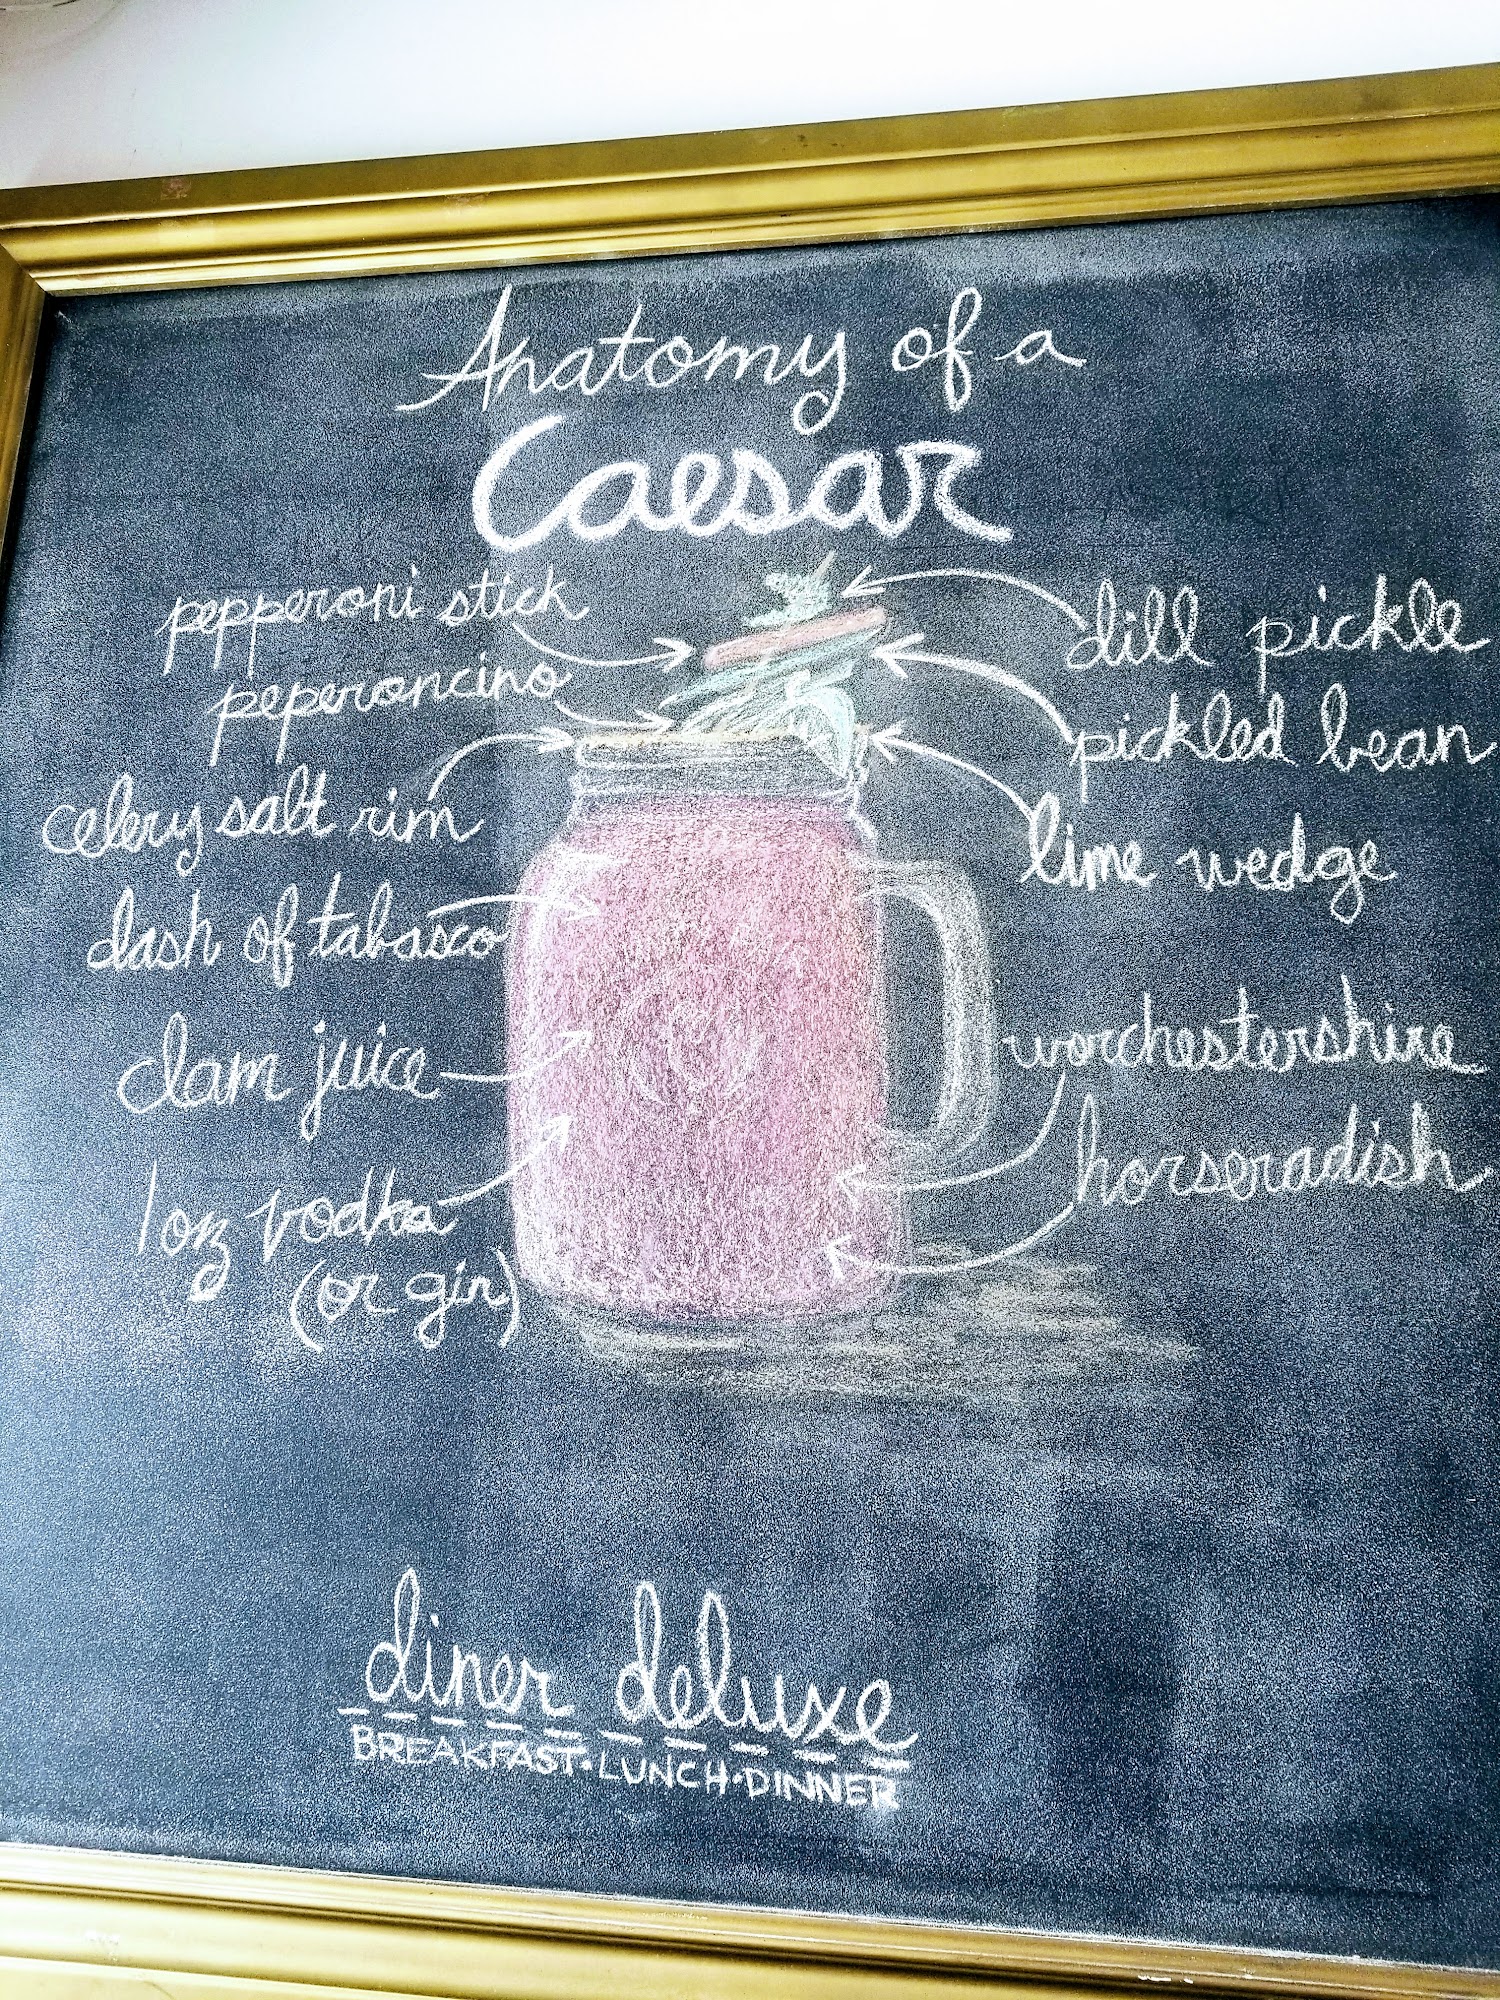 Anatomy of a
Caesar
pepperoni stick
peperoncino
celery salt rim
dash of tabasco
clam juice
1 oz vodka
(or gin)
dill pickle
pickled bean
lime wedge
worchestershire
horseradish
diner deluxe
BREAKFAST • LUNCH • DINNER